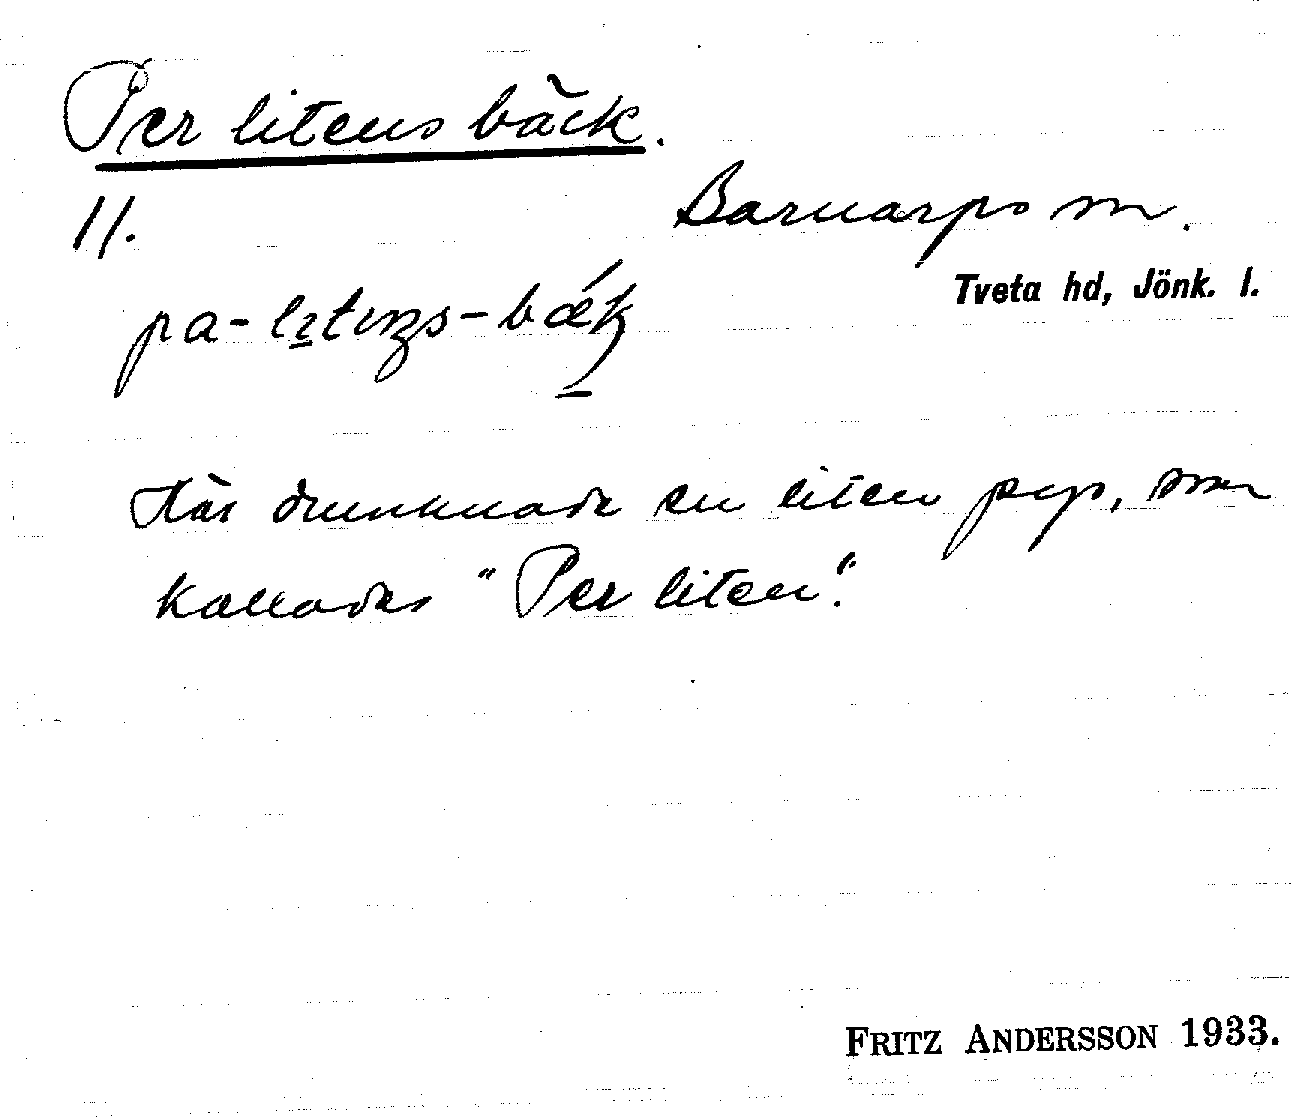 Per litens bäck.
11. Barnarps sn.
Tveta hd, Jönk. l.
pa-litiŋs-bǽk
Här drunknade en liten pys, som
kallades "Per liten".
FRITZ ANDERSSON 1933.